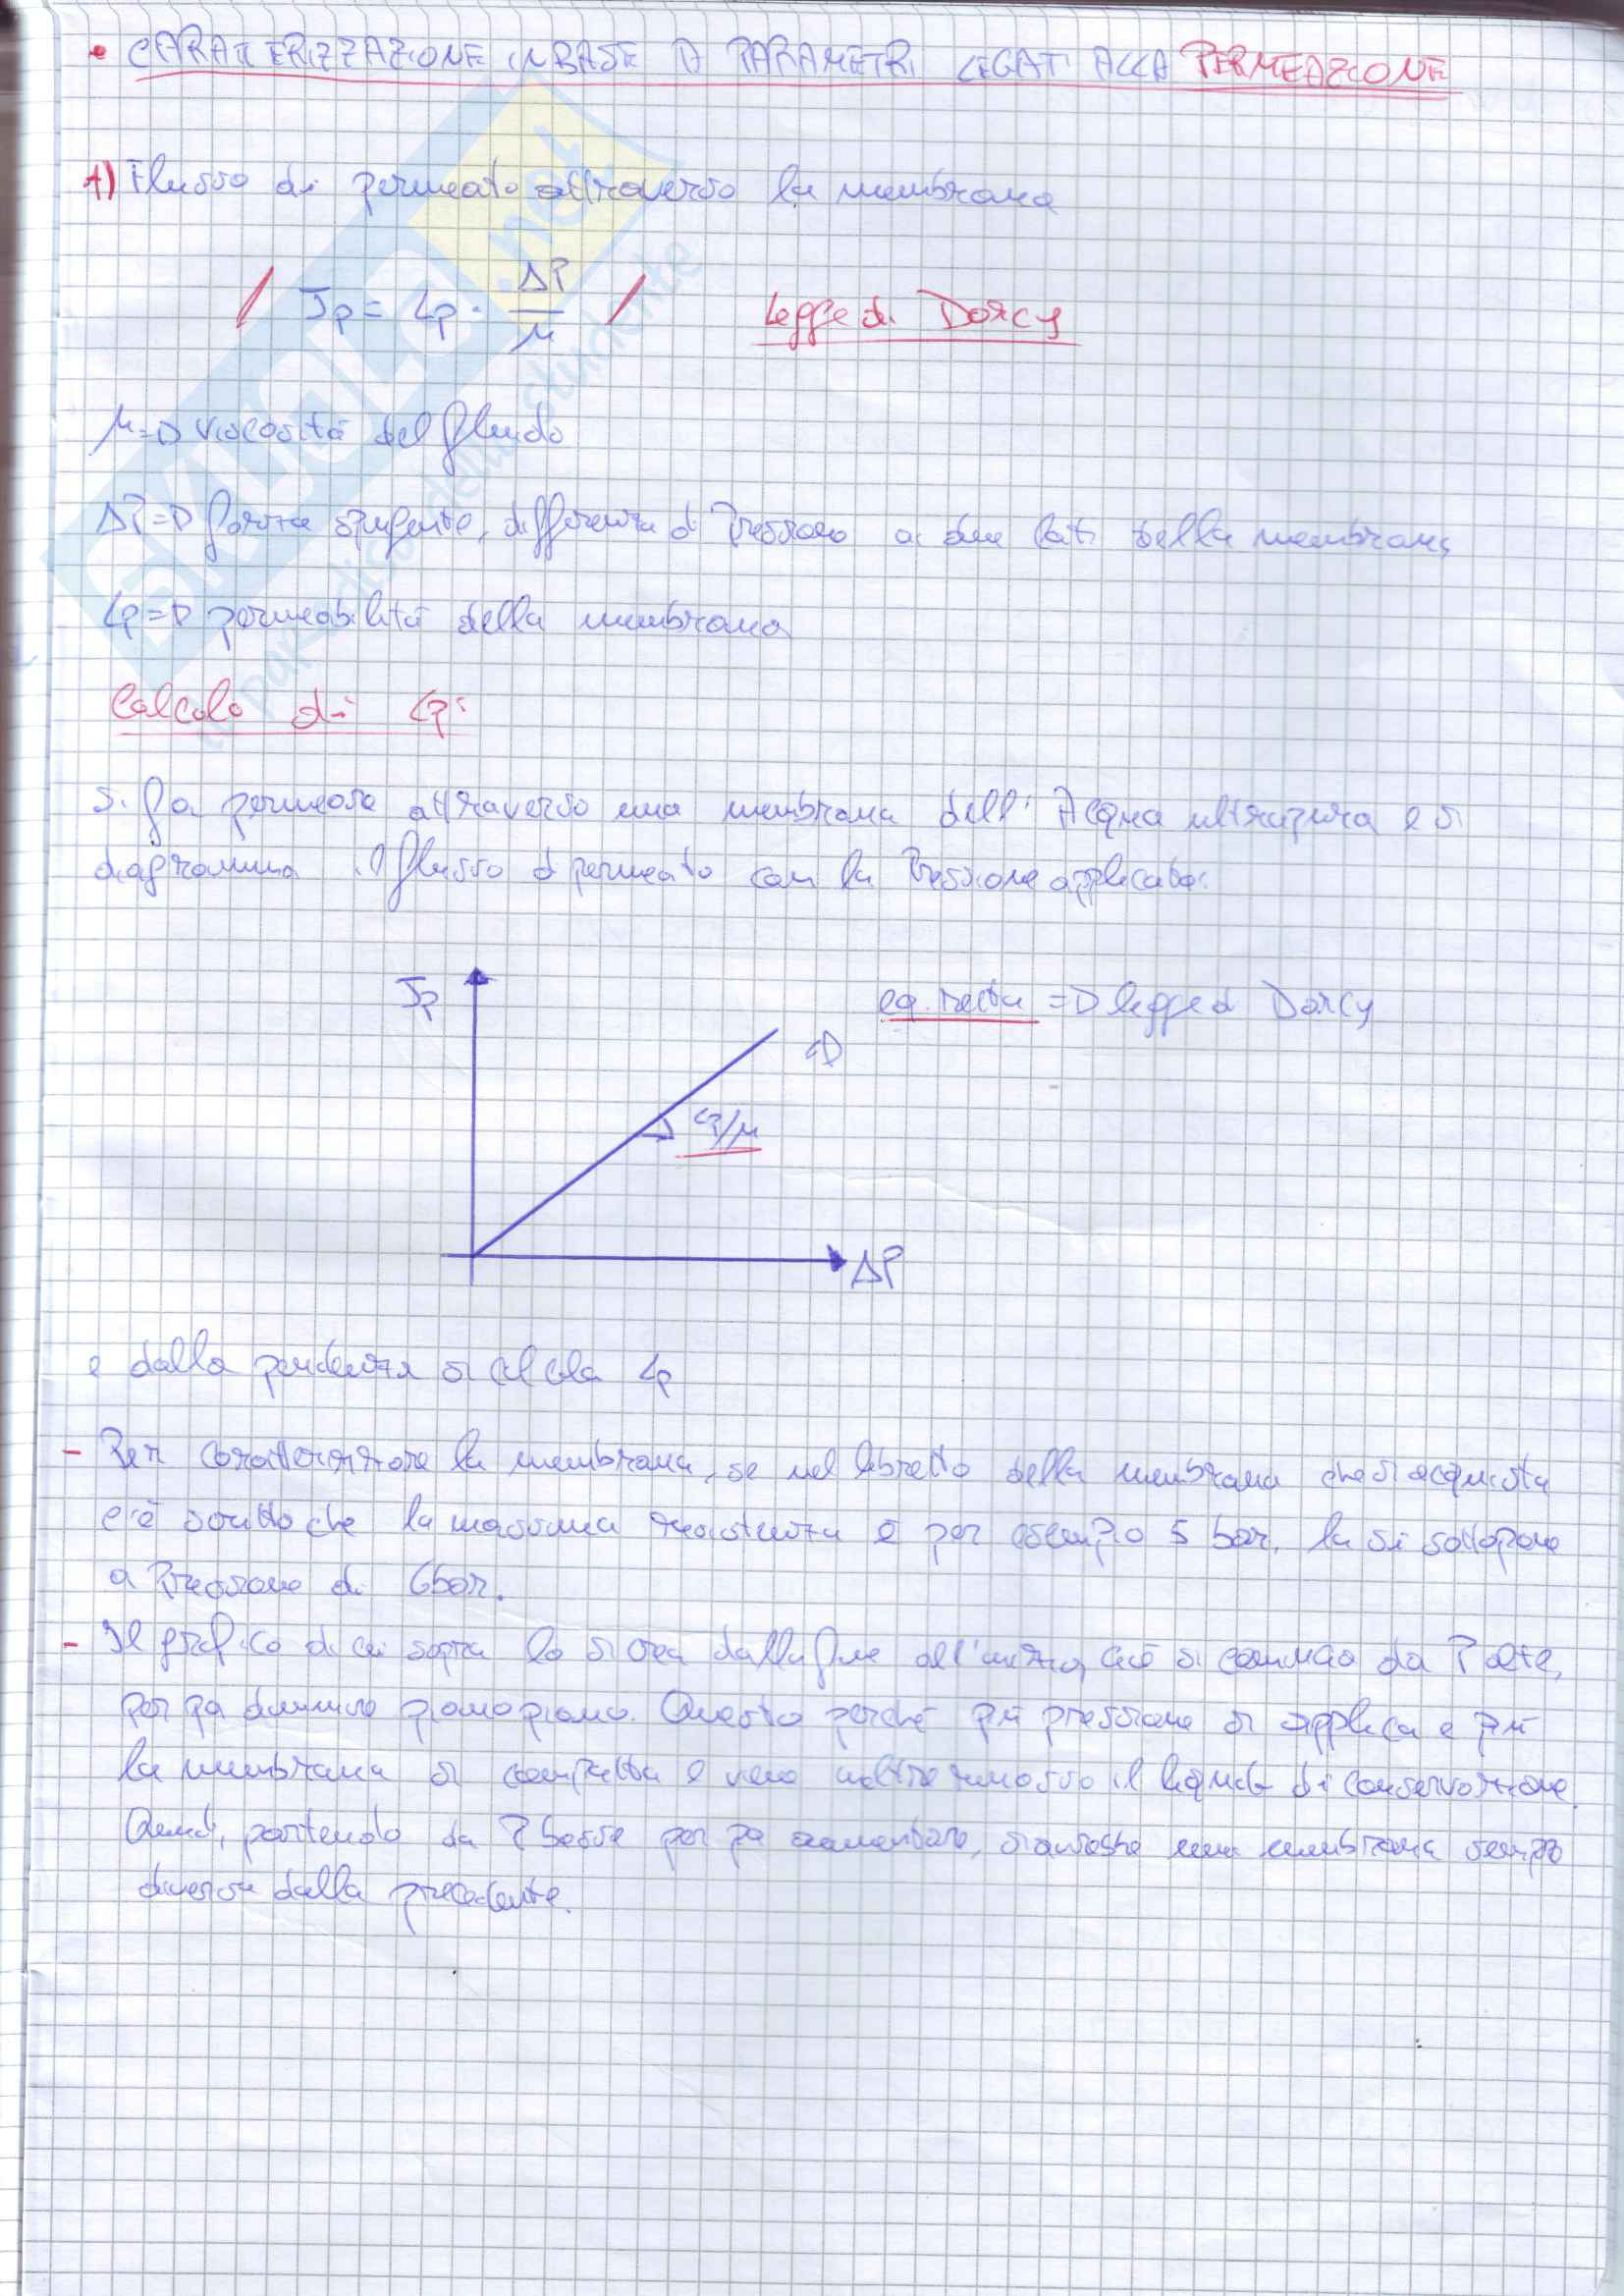 • CARATTERIZZAZIONE IN BASE A PARAMETRI LEGATI ALLA PERMEAZIONE
1) Flusso di permeato attraverso la membrana
/ Jp = Lp · ΔP/μ / Legge di Darcy
μ => viscosità del fluido
ΔP => forza spingente, differenza di Pressione ai due lati della membrana
Lp => permeabilità della membrana
Calcolo di Lp:
Si fa permeare attraverso una membrana dell'Acqua ultrapura e si
diagramma il flusso di permeato con la Pressione applicata:
Jp
eq. retta => legge di Darcy
Lp/μ
ΔP
e dalla pendenza si calcola Lp
- Per caratterizzare la membrana, se nel libretto della membrana che si acquista
c'è scritto che la massima resistenza è per esempio 5 bar, la si sottopone
a Pressione di 6bar.
- Il grafico di cui sopra lo si crea dalla fine all'inizio, cioè si comincia da P alte,
per poi diminuire piano piano. Questo perché più pressione si applica e più
la membrana si compatta e viene inoltre rimosso il liquido di conservazione.
Quindi, partendo da P basse per poi aumentare, si avrebbe una membrana sempre
diversa dalla precedente.
SKUOLA.net
il paradiso dello studente